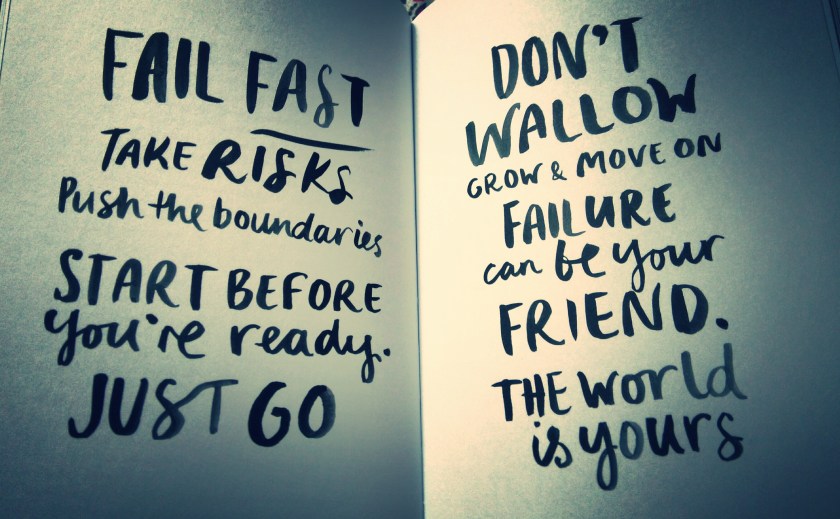 FAIL FAST
TAKE RISKS
Push the boundaries
START BEFORE
you're ready.
JUST GO
DON'T
WALLOW
GROW & MOVE ON
FAILURE
can be your
FRIEND.
THE WORld
is yours